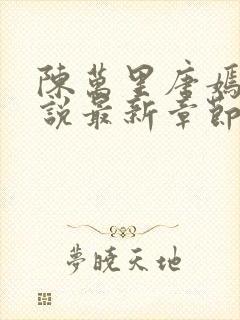 陳萬里唐嫣
說最新章節
夢曉天地